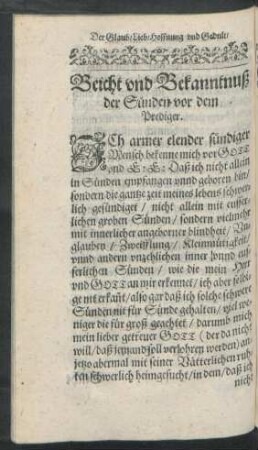 Der Glaub/Lieb/Hoffnung vnd Gedult/
Beicht vnd Bekanntnuß
der Sünden vor dem
Prediger.
ICh armer elender sündiger
Mensch bekenne mich vor GOTT
vnd E: E: Daß ich nicht allein
in Sünden empfangen vnnd geboren bin/
sondern die gantze zeit meines lebens schwer-
lich gesündiget / nicht allein mit eusser-
lichen groben Sünden / sondern vielmehr
mit innerlicher angeborner blindheit / Vn-
glauben / Zweifflung / Kleinmütigkeit /
vnnd andern vnzehlichen inner vnnd eu-
serlichen Sünden / wie die mein Herr
vnd GOTT an mir erkennet / ich aber
nit erkañt / also gar daß ich solche schwere
Sünden nit für Sünde gehalten / viel we-
niger die für groß geachtet / darumb mich
mein lieber getreuer GOTT (der da nicht
will / daß jemand soll verlohren werden) an-
jetzo abermal mit seiner Vätterlichen ruh-
ten schwerlich heimgesucht / in dem / daß ich
nicht